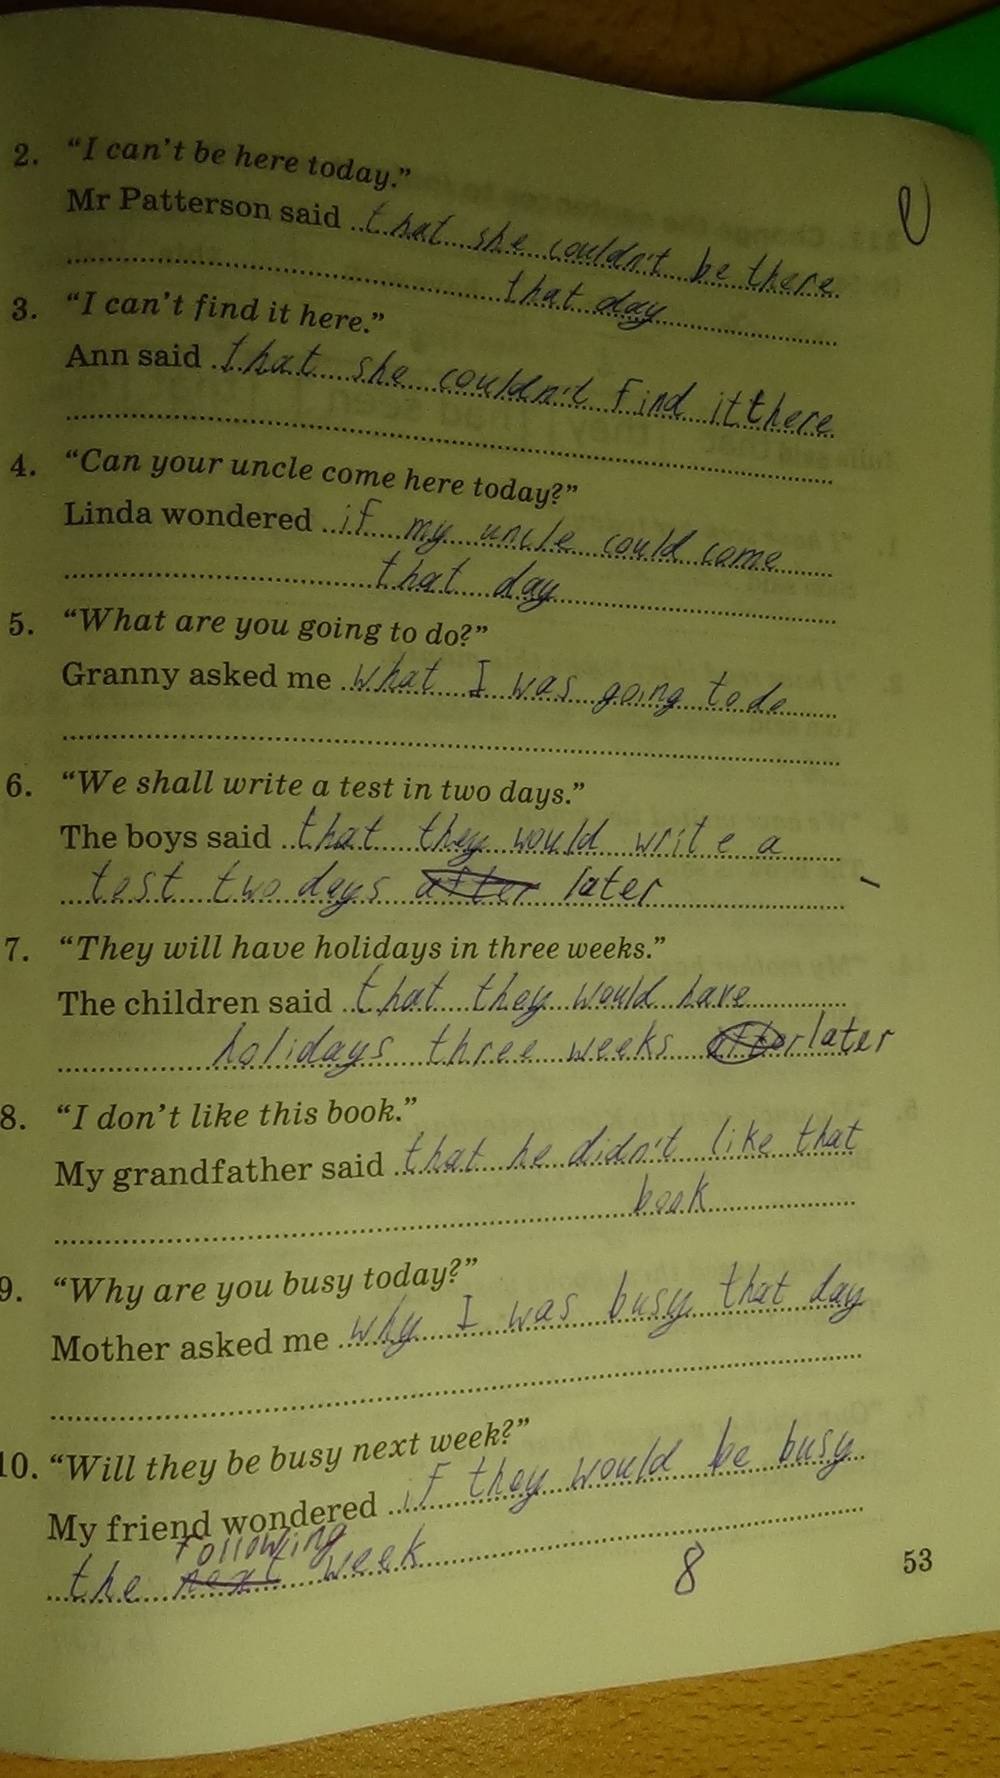 2. “I can't be here today.”
Mr Patterson said that she couldn't be there
that day
3. “I can't find it here.”
Ann said that she couldn't find it there
4. “Can your uncle come here today?”
Linda wondered if my uncle could come
that day
5. “What are you going to do?”
Granny asked me what I was going to do
6. “We shall write a test in two days.”
The boys said that they would write a
test two days after later
7. “They will have holidays in three weeks.”
The children said that they would have
holidays three weeks after later
8. “I don't like this book.”
My grandfather said that he didn't like that
book
9. “Why are you busy today?”
Mother asked me why I was busy that day
10. “Will they be busy next week?”
My friend wondered if they would be busy
following
the next week
8
53